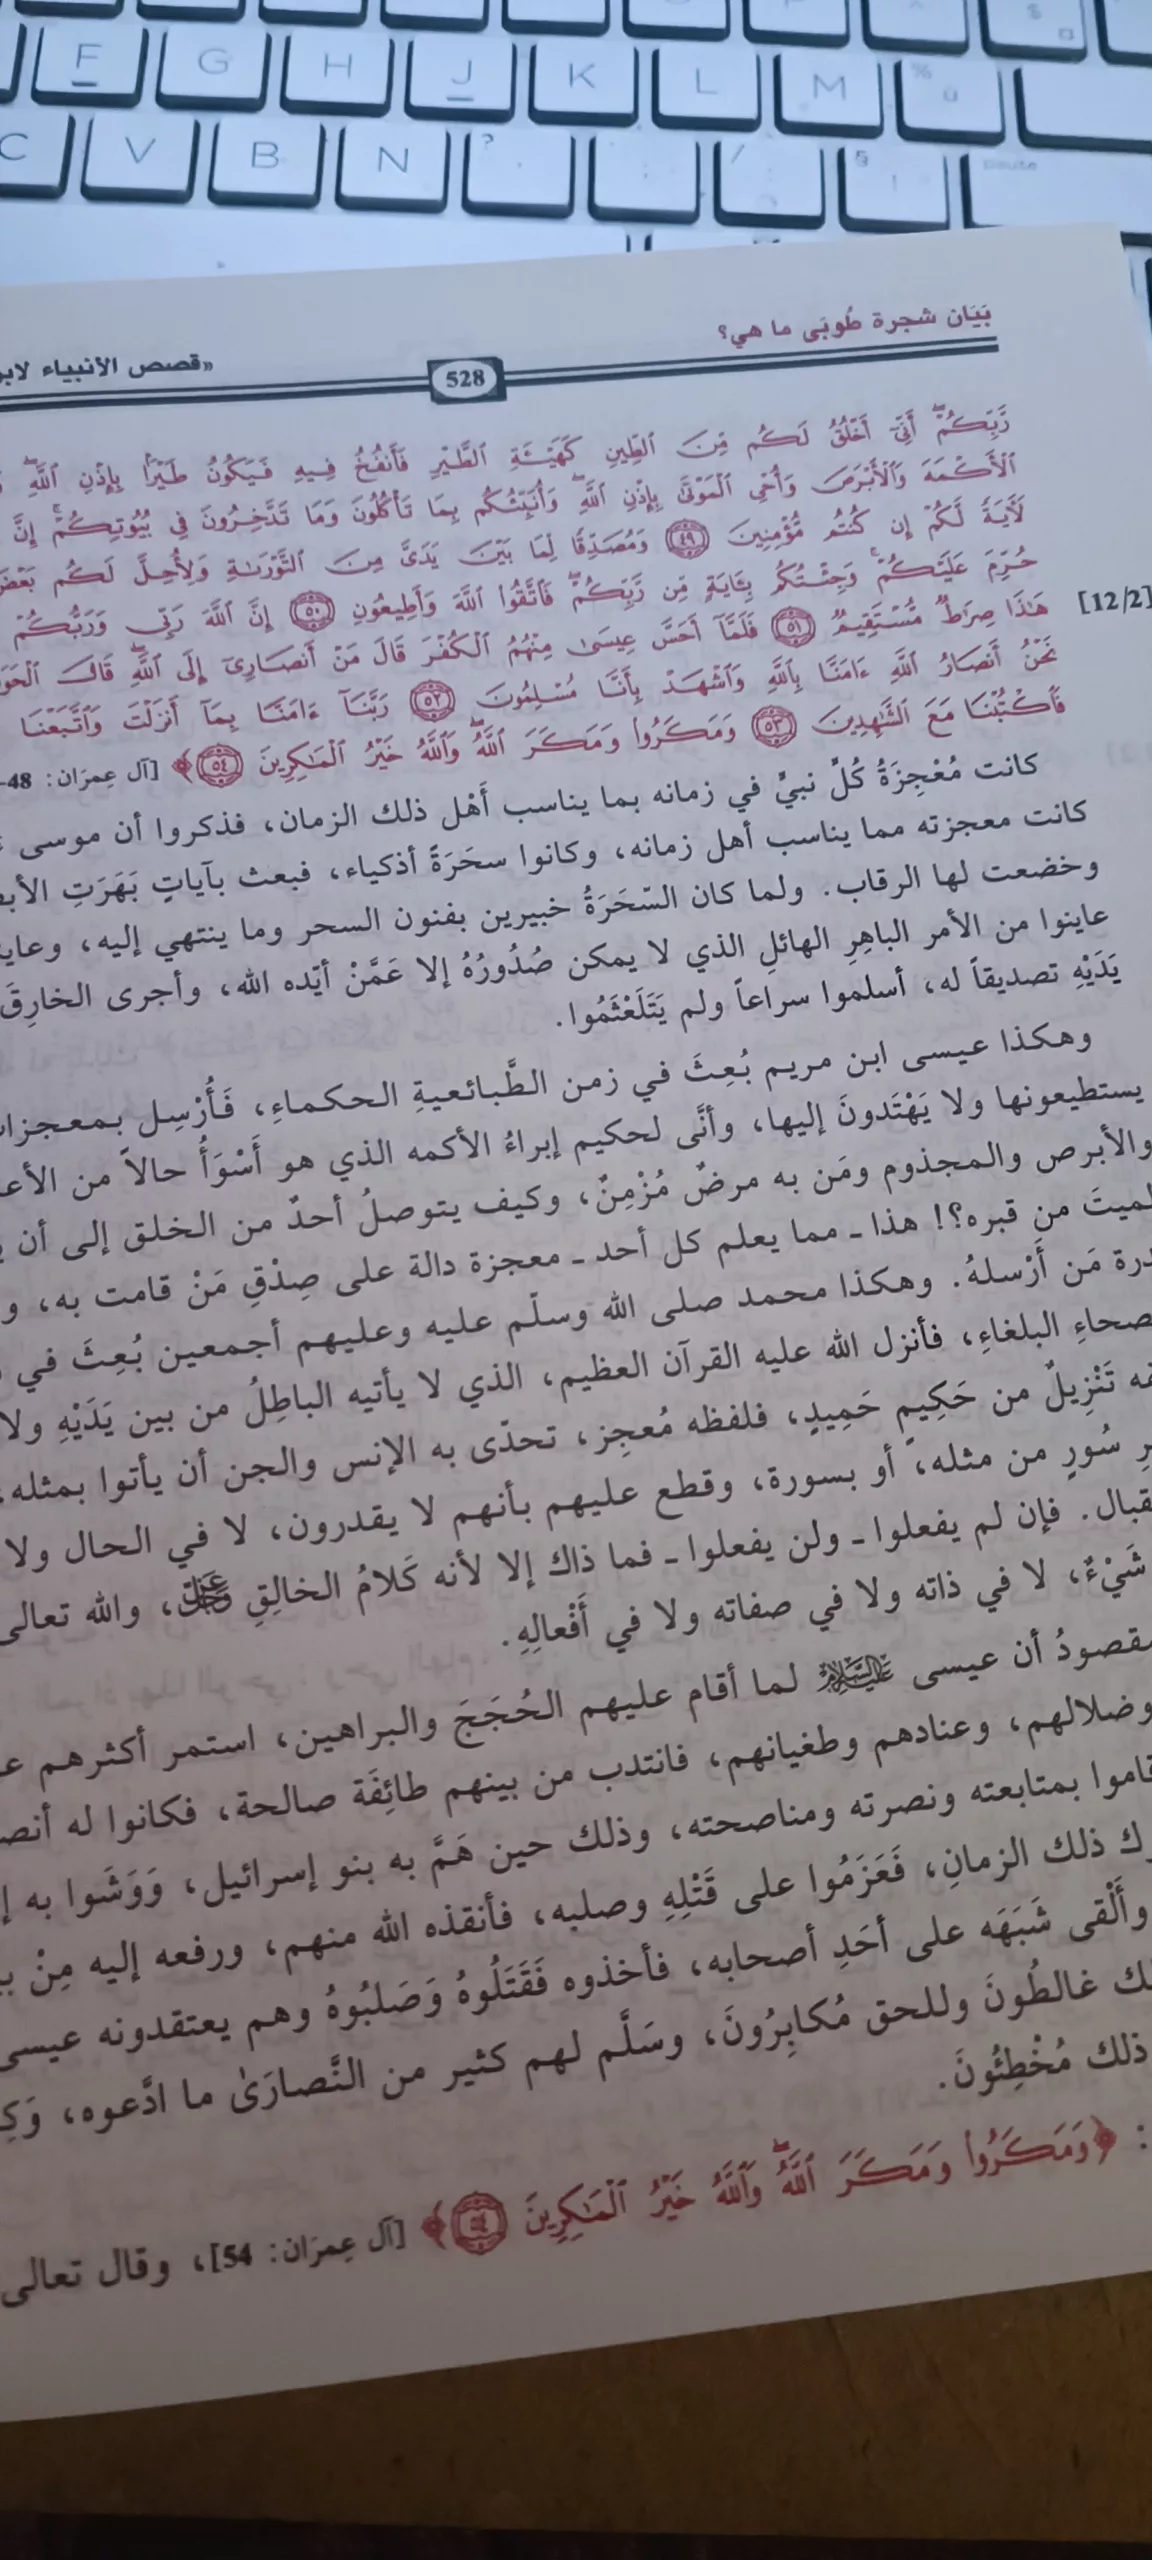 F G H J K L M % ù
C V B N ? . / § !
pause
بَيَان شجرة طُوبَى ما هي؟
528
«قصص الأنبياء
رَّبِّكُمْ أَنِّىٓ أَخْلُقُ لَكُم مِّنَ ٱلطِّينِ كَهَيْـَٔةِ ٱلطَّيْرِ فَأَنفُخُ فِيهِ فَيَكُونُ طَيْرًۢا بِإِذْنِ ٱللَّهِ
ٱلْأَكْمَهَ وَٱلْأَبْرَصَ وَأُحْىِ ٱلْمَوْتَىٰ بِإِذْنِ ٱللَّهِ وَأُنَبِّئُكُم بِمَا تَأْكُلُونَ وَمَا تَدَّخِرُونَ فِى بُيُوتِكُمْ إِنَّ
لَـَٔايَةً لَّكُمْ إِن كُنتُم مُّؤْمِنِينَ ٤٩ وَمُصَدِّقًا لِّمَا بَيْنَ يَدَىَّ مِنَ ٱلتَّوْرَىٰةِ وَلِأُحِلَّ لَكُم بَعْضَ
حُرِّمَ عَلَيْكُمْ وَجِئْتُكُم بِـَٔايَةٍ مِّن رَّبِّكُمْ فَٱتَّقُوا۟ ٱللَّهَ وَأَطِيعُونِ ٥٠ إِنَّ ٱللَّهَ رَبِّى وَرَبُّكُمْ
[12/2]
هَـٰذَا صِرَٰطٌ مُّسْتَقِيمٌ ٥١ فَلَمَّآ أَحَسَّ عِيسَىٰ مِنْهُمُ ٱلْكُفْرَ قَالَ مَنْ أَنصَارِىٓ إِلَى ٱللَّهِ قَالَ
نَحْنُ أَنصَارُ ٱللَّهِ ءَامَنَّا بِٱللَّهِ وَٱشْهَدْ بِأَنَّا مُسْلِمُونَ ٥٢ رَبَّنَآ ءَامَنَّا بِمَآ أَنزَلْتَ وَٱتَّبَعْنَا
فَٱكْتُبْنَا مَعَ ٱلشَّـٰهِدِينَ ٥٣ وَمَكَرُوا۟ وَمَكَرَ ٱللَّهُ وَٱللَّهُ خَيْرُ ٱلْمَـٰكِرِينَ ٥٤﴾ [آل عِمرَان: 48-
كانت مُعْجِزَةُ كُلِّ نبيٍّ في زمانه بما يناسب أَهْل ذلك الزمان، فذكروا أن موسى
كانت معجزته مما يناسب أهل زمانه، وكانوا سحَرَةً أذكياء، فبعث بآياتٍ بَهَرَتِ
وخضعت لها الرقاب. ولما كان السّحَرَةُ خبيرين بفنون السحر وما ينتهي إليه،
عاينوا من الأمر الباهِرِ الهائلِ الذي لا يمكن صُدُورُهُ إلا عَمَّنْ أيّده الله، وأجرى الخارِقَ
يَدَيْهِ تصديقاً له، أسلموا سراعاً ولم يَتَلَعْثَمُوا.
وهكذا عيسى ابن مريم بُعِثَ في زمن الطَّبائعيةِ الحكماءِ، فَأُرْسِل
يستطيعونها ولا يَهْتَدونَ إليها، وأنَّى لحكيم إبراءُ الأكمه الذي هو أَسْوَأُ حالاً من
والأبرص والمجذوم ومَن به مرضٌ مُزْمِنٌ، وكيف يتوصلُ أحدٌ من الخلق إلى أن
من قبره؟! هذا ـ مما يعلم كل أحد ـ معجزة دالة على صِدْقِ مَنْ قامت به،
مَن أَرْسلهُ. وهكذا محمد صلى الله وسلّم عليه وعليهم أجمعين بُعِثَ في
البلغاءِ، فأنزل الله عليه القرآن العظيم، الذي لا يأتيه الباطِلُ من بين يَدَيْهِ ولا
تَنْزِيلٌ من حَكِيمٍ حَمِيدٍ، فلفظه مُعجِز، تحدّى به الإنس والجن أن يأتوا بمثله،
سُورٍ من مثله، أو بسورة، وقطع عليهم بأنهم لا يقدرون، لا في الحال ولا
فإن لم يفعلوا ـ ولن يفعلوا ـ فما ذاك إلا لأنه كَلامُ الخالِقِ عَزَّ وَجَلَّ، والله تعالى
شَيْءٌ، لا في ذاته ولا في صفاته ولا في أَفْعالِهِ.
أن عيسى عَلَيْهِ السَّلَام لما أقام عليهم الحُجَجَ والبراهين، استمر أكثرهم
وضلالهم، وعنادهم وطغيانهم، فانتدب من بينهم طائِفَة صالحة، فكانوا له
بمتابعته ونصرته ومناصحته، وذلك حين هَمَّ به بنو إسرائيل، وَوَشَوا به
ذلك الزمانِ، فَعَزَمُوا على قَتْلِهِ وصلبه، فأنقذه الله منهم، ورفعه إليه مِنْ
وأَلْقى شَبَهَه على أحَدِ أصحابه، فأخذوه فَقَتَلُوهُ وَصَلبُوهُ وهم يعتقدونه عيسى
غالطُونَ وللحق مُكابِرُونَ، وسَلَّم لهم كثير من النَّصارَىٰ ما ادَّعوه،
ذلك مُخْطِئُونَ.
: ﴿وَمَكَرُوا۟ وَمَكَرَ ٱللَّهُ وَٱللَّهُ خَيْرُ ٱلْمَـٰكِرِينَ ٥٤﴾ [آل عِمرَان: 54]، وقال تعالى